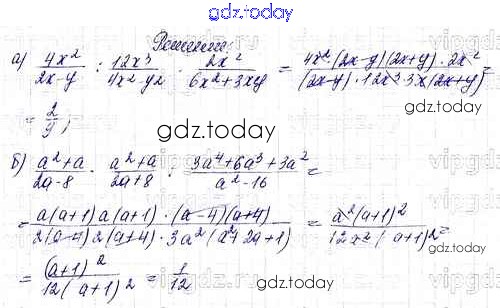 gdz.today
Решение:
а) 4x²/(2x-y) : 12x³/(4x²-y²) · 2x²/(6x²+3xy) = 4x²(2x-y)(2x+y)·2x²/((2x-y)·12x³·3x(2x+y)) =
= 2/9;
gdz.today
б) (a²+a)/(2a-8) · (a²+a)/(2a+8) : (3a⁴+6a³+3a²)/(a²-16) =
= a(a+1)a(a+1)·(a-4)(a+4)/(2(a-4)2(a+4)·3a²(a²+2a+1)) = a²(a+1)²/(12a²(a+1)²) =
= (a+1)²/(12(a+1)²) = 1/12
gdz.today